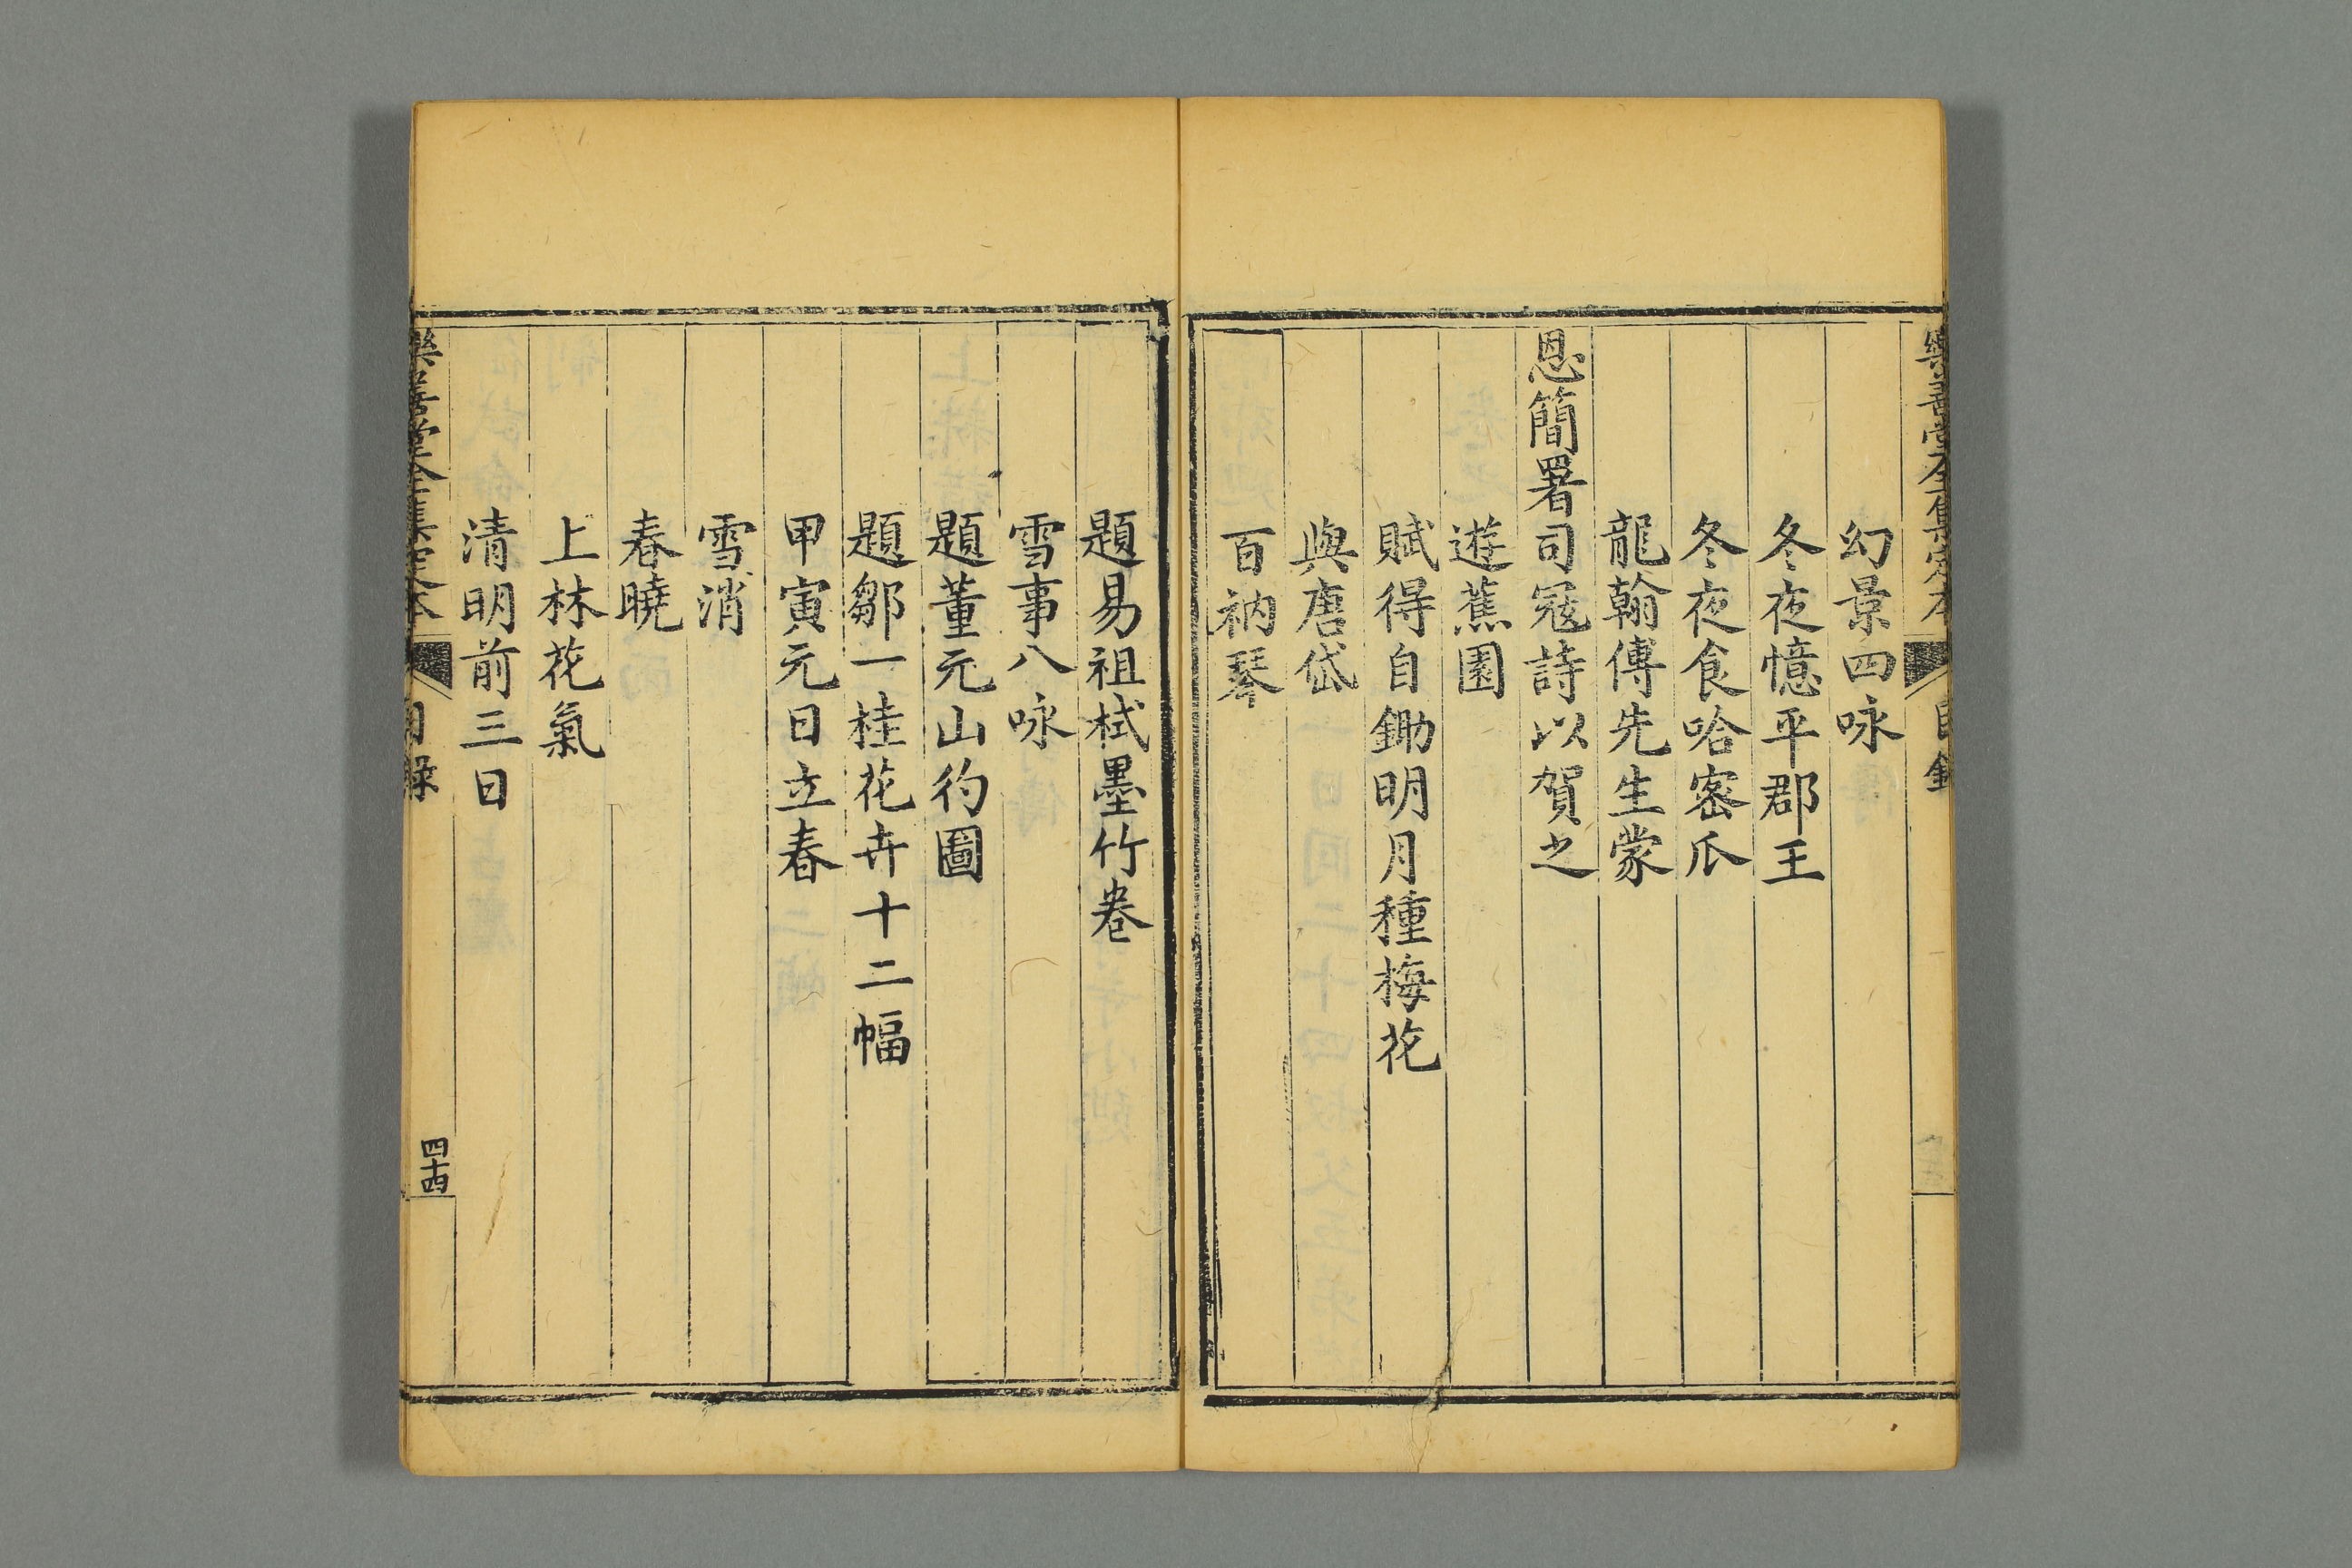 樂善堂全集定本 目錄
幻景四咏
冬夜憶平郡王
冬夜食哈密瓜
龍翰傅先生蒙
恩簡署司冦詩以賀之
遊蕉園
賦得自鋤明月種梅花
與唐岱
百衲琴
題易祖栻墨竹卷
雪事八咏
題董元山彴圖
題鄒一桂花卉十二幅
甲寅元日立春
雪消
春曉
上林花氣
清明前三日
樂善堂全集定本 目錄 四十四